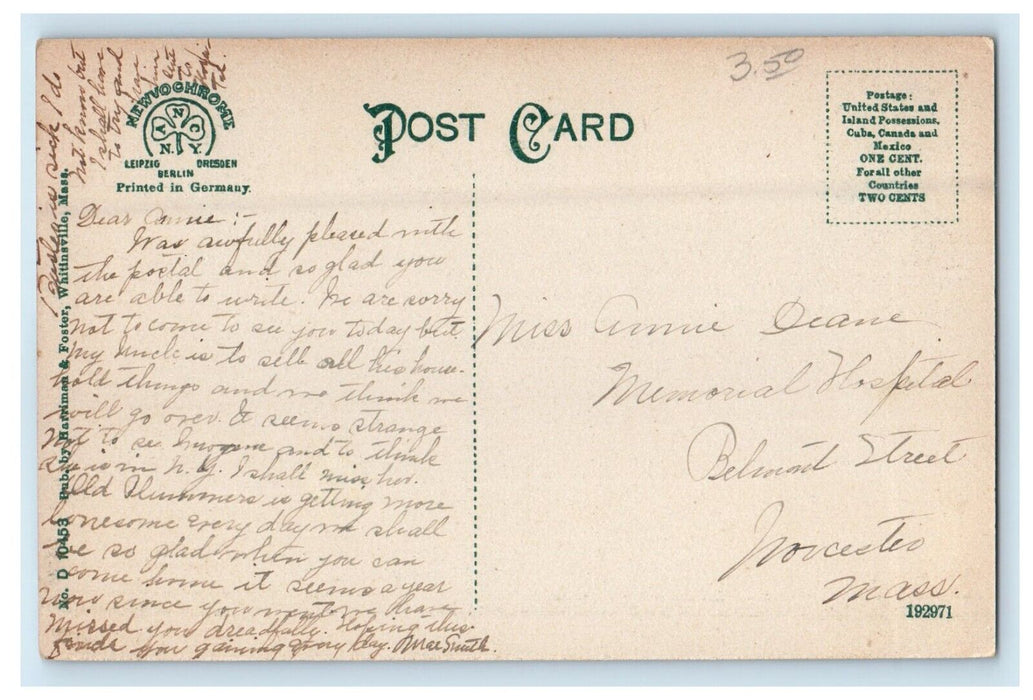 3.50
POST CARD
NEWVOCHROME
A N C
N.Y.
LEIPZIG DRESDEN
BERLIN
Printed in Germany.
Postage:
United States and
Island Possessions,
Cuba, Canada and
Mexico
ONE CENT.
For all other
Countries
TWO CENTS
Dear Annie :-
Was awfully pleased with
the postal and so glad you
are able to write. We are sorry
not to come to see you today but
my Uncle is to sell all his house-
hold things and we think we
will go over. It seems strange
not to se Imogene and to think
she is in N.Y. I shall miss her.
Old Plummers is getting more
lonesome every day we shall
be so glad when you can
come home it seems a year
now since you went we have
missed you dreadfully. Hoping this
finds you gaining every day. Mae Smith.
is sick I do
not know but
I shall have
to try and
Miss Annie Deane
Memorial Hospital
Belmont Street
Worcester
Mass.
192971
No. D 10453 Pub. by Harriman & Foster, Whitinsville, Mass.